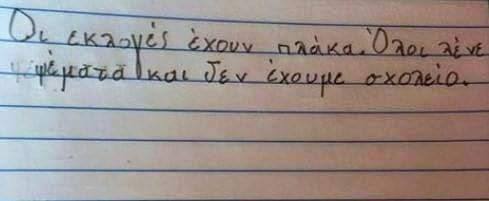 Οι εκλογές έχουν πλάκα. Όλοι λένε
ψέματα και δεν έχουμε σχολείο.